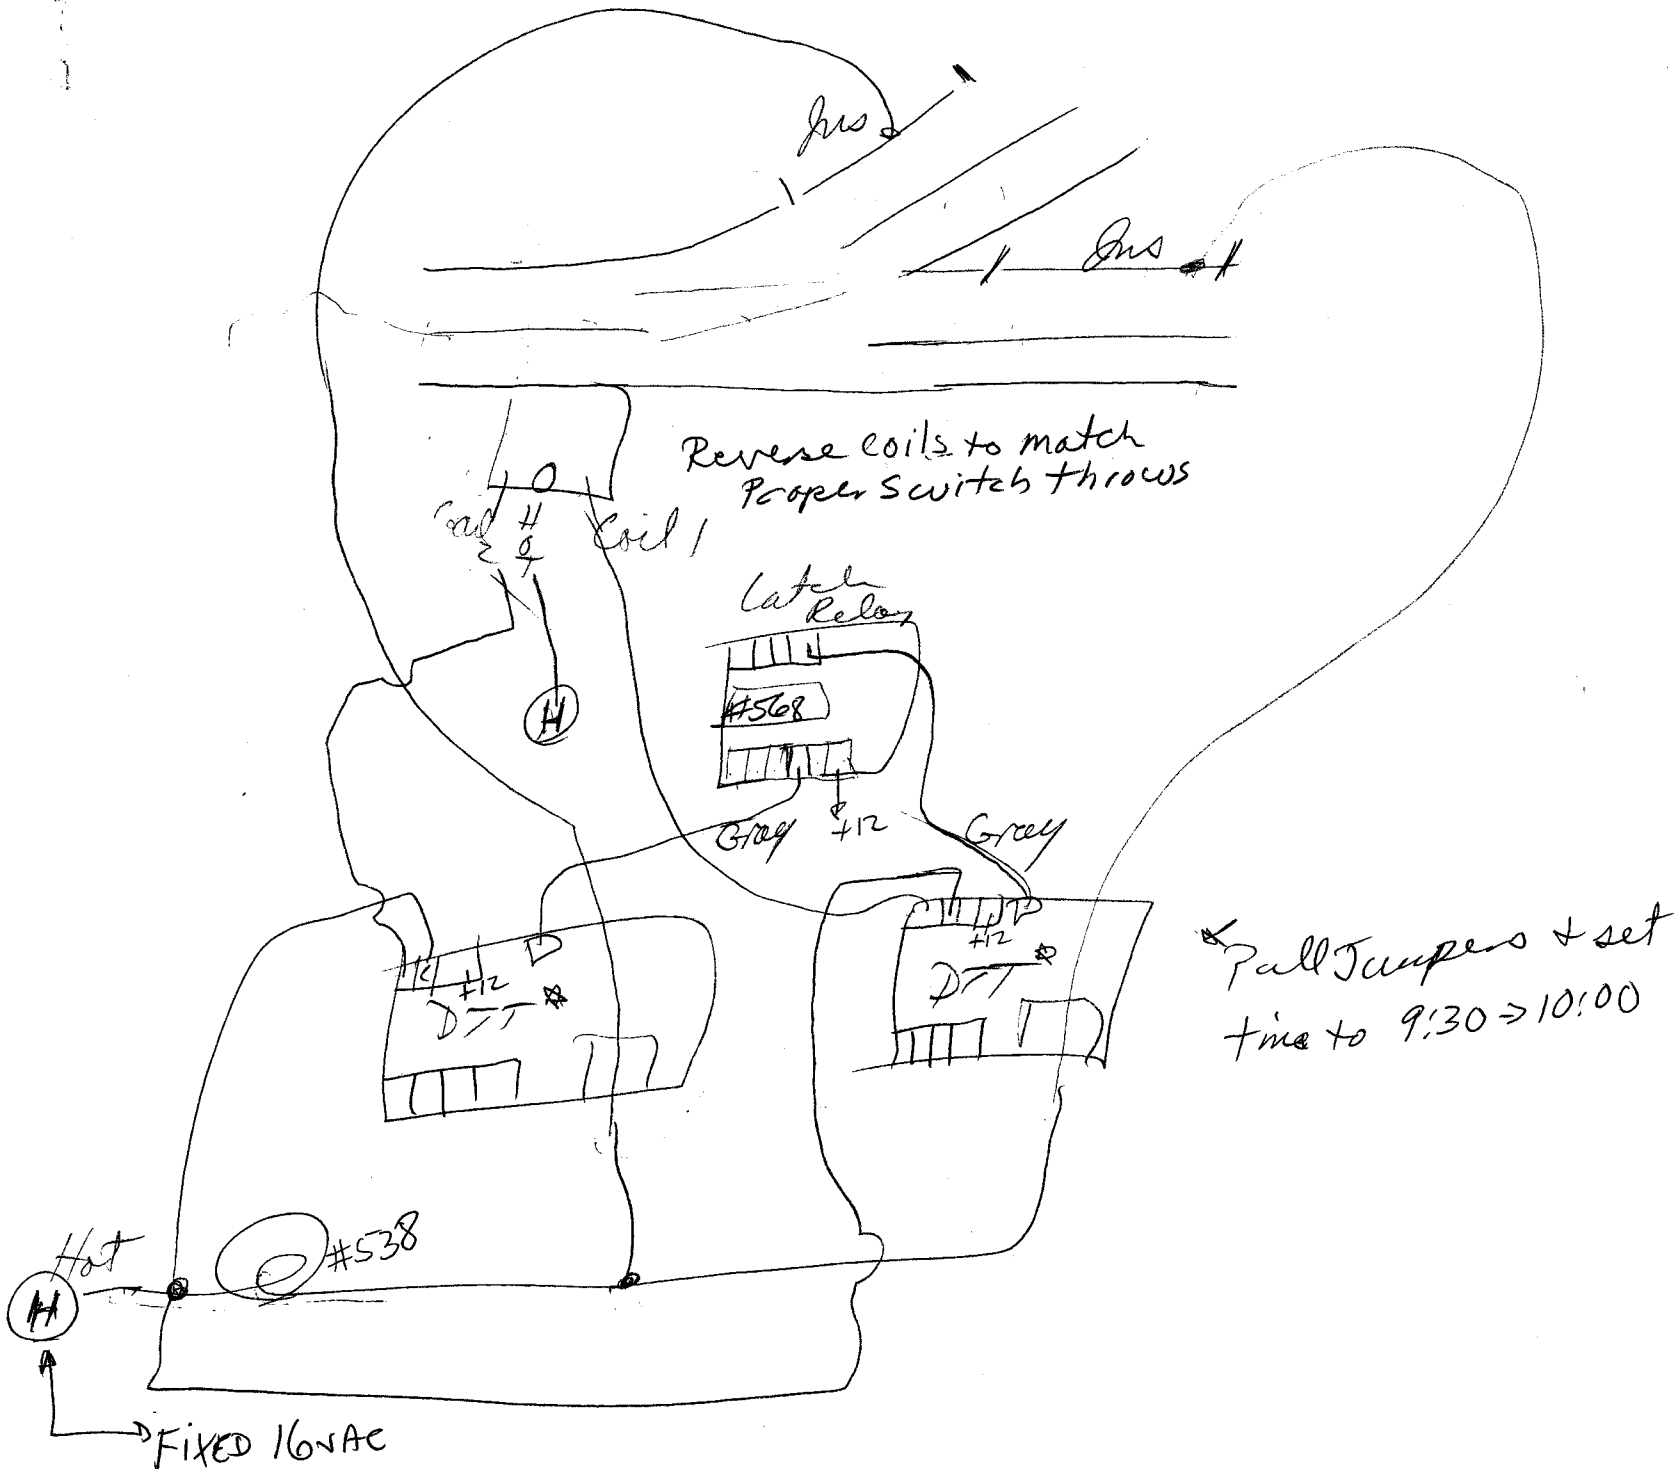 Ins
Ins
Reverse coils to match
Proper Switch throws
Coil 2
HOT
Coil 1
Latch
Relay
H
#568
Gray
+12
Gray
+12
DTT*
+12
DTT*
*Pull Jumpers & set
time to 9:30→10:00
Hot
#538
H
FIXED 16VAC